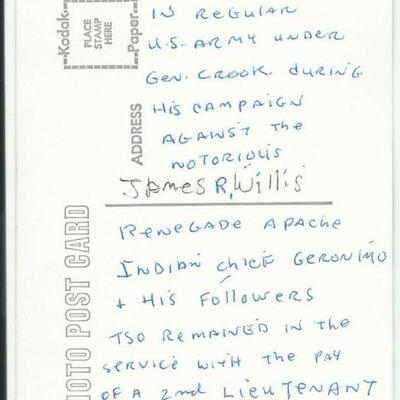 Kodak
PLACE
STAMP
HERE
Paper
IN REGULAR
U.S. ARMY UNDER
GEN. CROOK DURING
HIS CAMPAIGN
AGAINST the
NOTORIOUS
ADDRESS
JAMES R. Willis
RENEGADE APACHE
INDIAN CHIEF GERONIMO
+ HIS FOLLOWERS
TSO REMAINED IN the
SERVICE WITH the PAY
OF A 2nd LIEUTENANT
OTO POST CARD